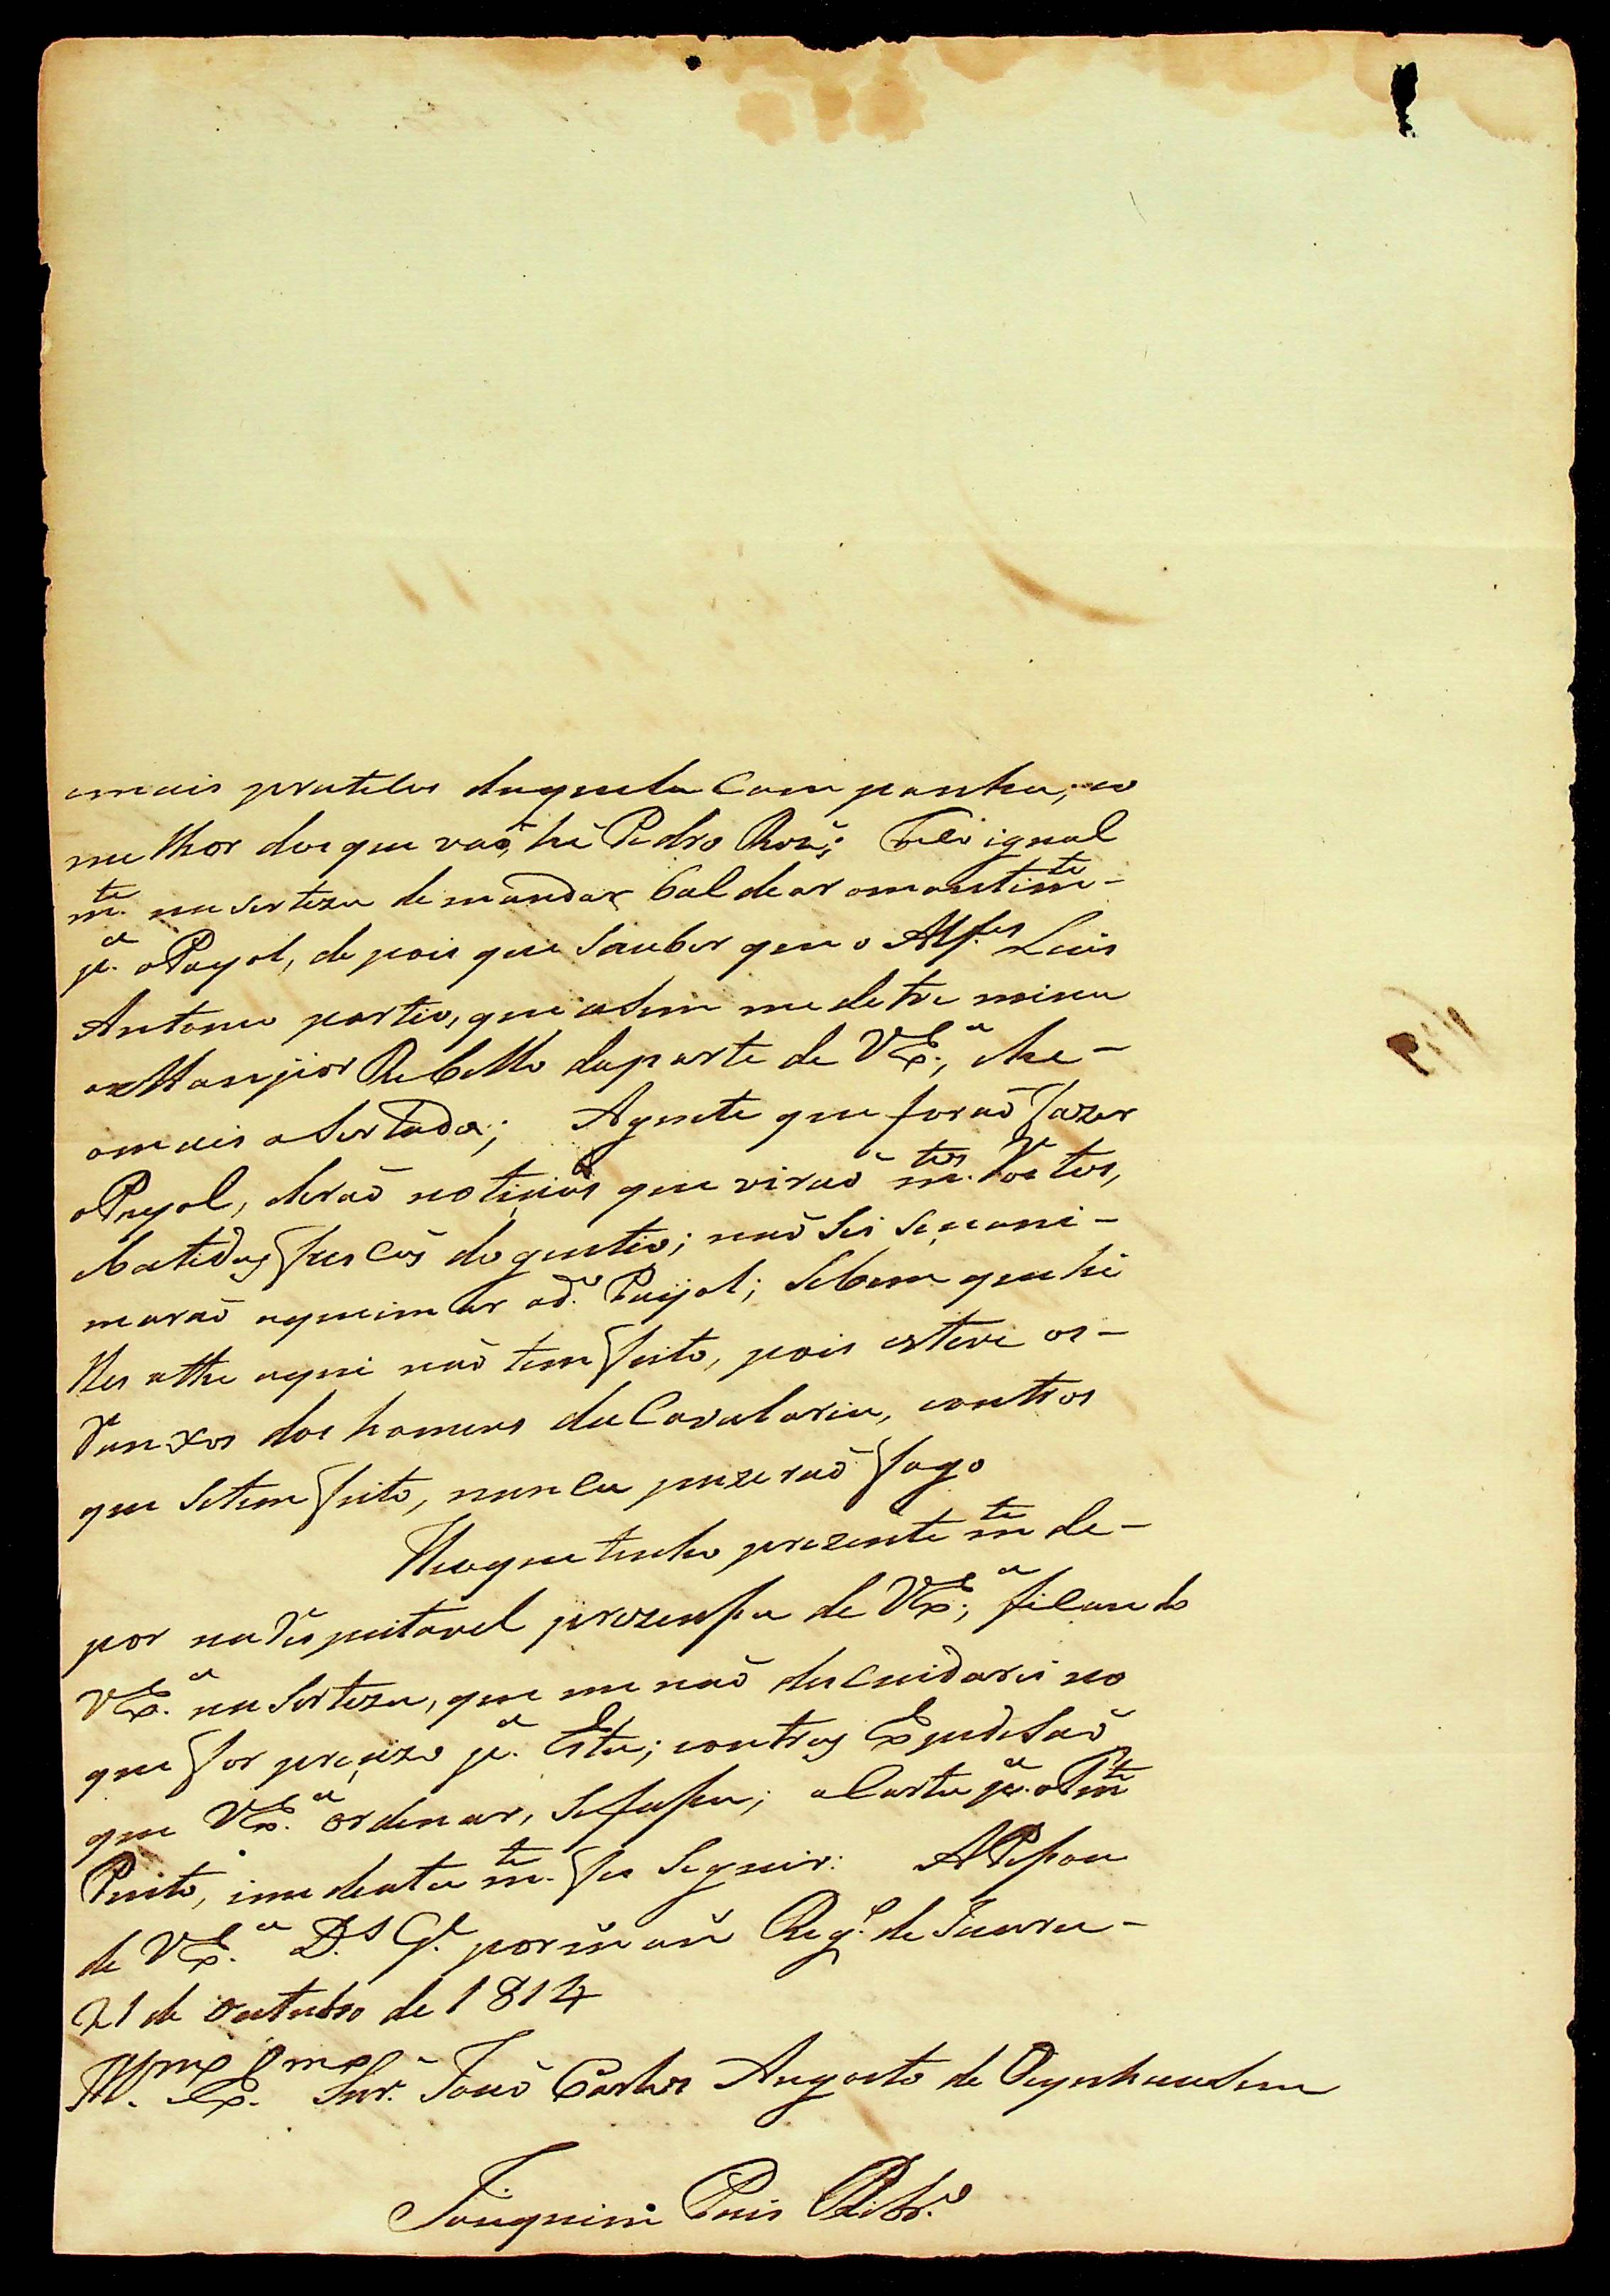 emais praticos daquela Companha; eo
melhor dos que vaõ, hé Pedro Roiz; Fico igual
m.te na serteza de mandar baldear omantim.to
p.a oPayol, depois que Sauber que o Alf.es Luis
Antonio partio, que asim me detre mina
o Rebello daparte de VEx.a; ehe-
omais asertado; Agente que foraõ fazer
oPayol, deraõ noticias que viraõ m.tos Vastos,
ebatidas frescas do gentio; naõ Sei Seuani-
maraõ aqueimar od.o Payol; Sebem que hé
lles athe aqui naõ tem feito, pois esteve os-
Ranxos dos homens da Cavalaria, eoutros
que Setem feito, nunca puzeraõ fogo
Heoque tenho prezentem.te de-
por naRespeitavel prezensa de VEx.a; ficando
VEx.a na Serteza, que me naõ descuidarei no
que for precizo p.a Esta; eoutras Expedisaõ
que VEx.a ordenar, Sefasa; aCarta p.a oTen.te
Pinto, imediatam.te fes Seguir: APesoa
de VEx.a D.s G.e por m. an. Reg.o de Jauru-
21 de Outubro de 1814
Ill.mo Ex.mo Snr. Joaõ Carlos Augosto de Oeynhausem
Joaquim Ribr.o